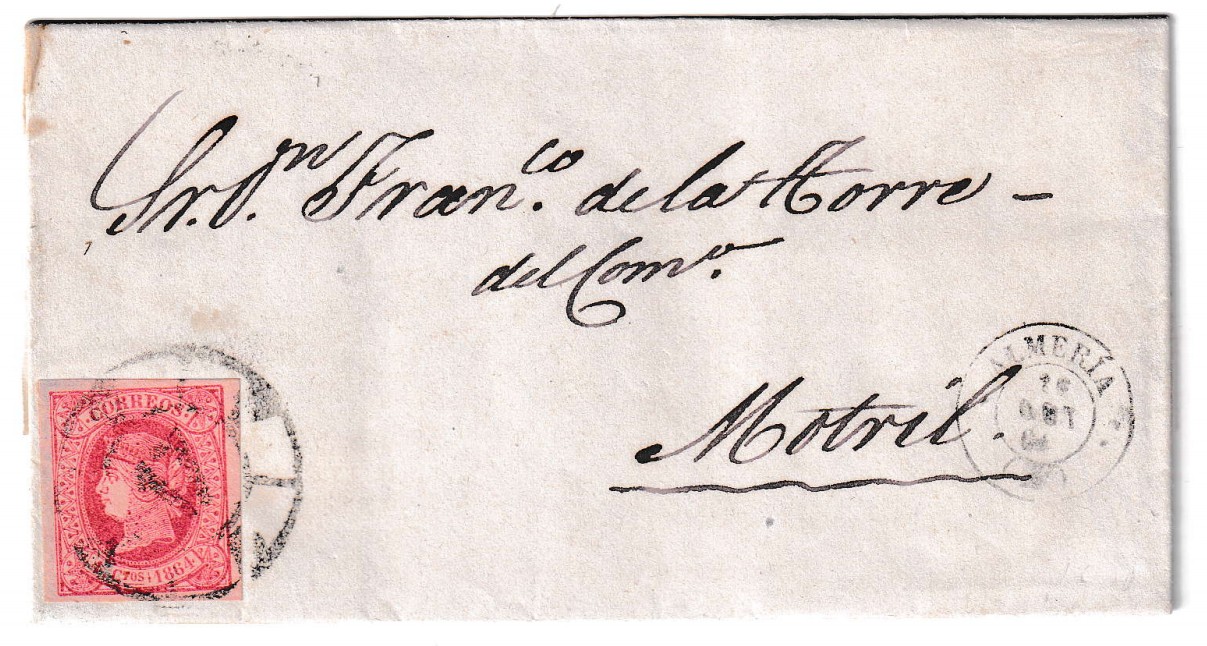 Sr. Dn. Franco. de la Torre -
del Como.
Motril.
ALMERÍA
16
OCT
64
CORREOS
CTOS 1864